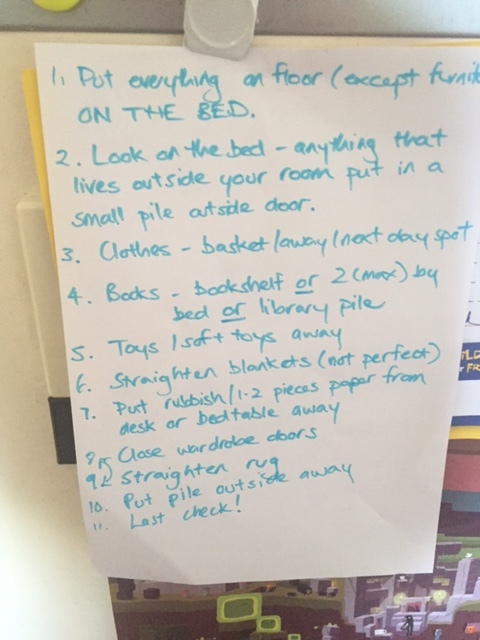 1. Put everything on floor (except furni
ON THE BED.
2. Look on the bed - anything that
lives outside your room put in a
small pile outside door.
3. Clothes - basket/away/next day spot
4. Books - bookshelf or 2 (max) by
bed or library pile
5. Toys / soft toys away
6. Straighten blankets (not perfect)
7. Put rubbish/1-2 pieces paper from
desk or bedtable away
8. Close wardrobe doors
9. Straighten rug
10. Put pile outside away
11. Last check!